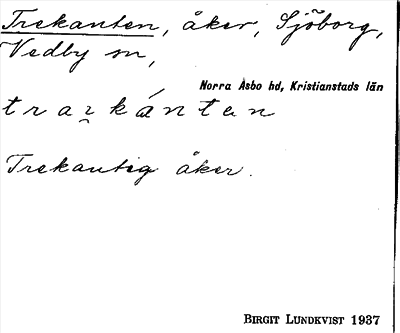 Trekanten, åker, Sjöborg,
Vedby sn,
Norra Åsbo hd, Kristianstads län
traʐkánten
Trekantig åker.
BIRGIT LUNDKVIST 1937